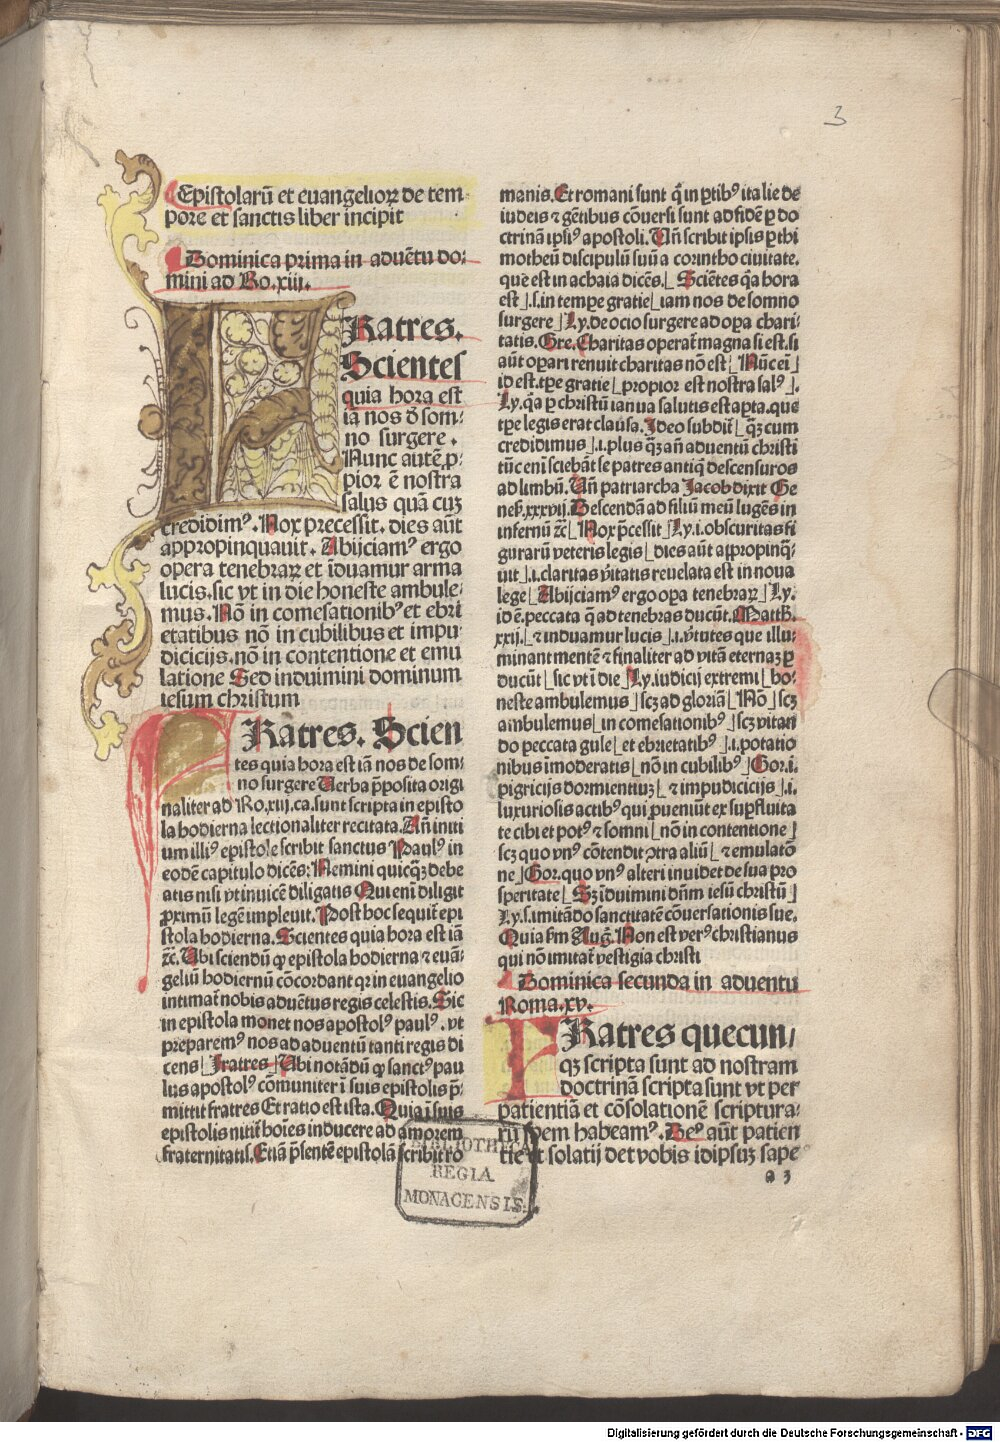 3
Epistolarū et euangelioꝝ de tem-
pore et sanctis liber incipit
Dominica prima in aduētu do-
mini ad Ro.xiii.
FRatres.
Scientes
quia hora est
ia nos ð som-
no surgere.
Nunc autē ꝓ-
pior ē nostra
salus quā cuꝫ
credidimꝰ. Nox precessit. dies aūt
appropinquauit. Abijciamꝰ ergo
opera tenebraꝝ et īduamur arma
lucis. sic vt in die honeste ambule-
mus. Nō in comesationibꝰ et ebri
etatibus nō in cubilibus et impu-
dicicijs. nō in contentione et emu
latione Sed induimini dominum
iesum christum
FRatres. Scien
tes quia hora est iā nos de som-
no surgere Uerba p̄posita origi
naliter ad Ro.xiii.ca. sunt scripta in episto
la hodierna lectionaliter recitata. Añ initi
um illiꝰ epistole scribit sanctus Paulꝰ in
eodē capitulo dicēs: Nemini quicqꝫ debe
atis nisi vt inuicē diligatis Qui enī diligit
ꝓximū legē impleuit. Post hoc sequit̄ epi
stola hodierna. Scientes quia hora est iā
ꝛc̄. Ubi sciendū ꝙ epistola hodierna ⁊ euā-
geliū hodiernū cōcordant qꝛ in euangelio
intimat̄ nobis aduētus regis celestis. Sic
in epistola monet nos apostolꝰ paulꝰ. vt
preparemꝰ nos ad aduentū tanti regis di
cens Fratres Ubi notādū ꝙ sanctꝰ pau
lus apostolꝰ cōmuniter ī suis epistolis p̄-
mittit fratres Et ratio est ista. Quia ī suis
epistolis nitit̄ hoīes inducere ad amorem
fraternitatis. Etiā p̄sentē epistolā scribit ro
manis. Et romani sunt q̄ in ꝑtibꝰ italie de
iudeis ⁊ gētibus cōuersi sunt ad fidē ꝑ do
ctrinā ipsiꝰ apostoli. Uñ scribit ipsis ꝑ thi
motheū discipulū suū a corintho ciuitate.
que est in achaia dicēs. Sciētes qa hora
est .s. in tempe gratie iam nos de somno
surgere Ly. de ocio surgere ad oꝑa chari-
tatis. Gre. Charitas operat̄ magna si est. si
aūt oꝑari renuit charitas nō est Nūc eī
id est. tꝑe gratie propior est nostra salꝰ .
Ly. qa ꝑ christū ianua salutis est aꝑta. que
tꝑe legis erat clausa. Ideo subdit̄ qꝫ cum
credidimus .i. plus qꝫ añ aduentū christi
tūc eni sciebāt se patres antiq̄ descensuros
ad limbū. Uñ patriarcha Jacob dixit Ge
nes̄. xxxvij. Descendā ad filiū meū lugēs in
infernū ꝛc̄ Nox p̄cessit Ly. i. obscuritas fi
gurarū veteris legis dies aūt appropinq̄-
uit .i. claritas v̄itatis reuelata est in noua
lege Abijciamꝰ ergo oꝑa tenebraꝝ Ly.
id ē. peccata q̄ ad tenebras ducūt. Matth.
xxij. ⁊ induamur lucis .i. v̄tutes que illu-
minant mentē ⁊ finaliter ad vitā eternaꝫ ꝑ
ducūt sic vt ī die Ly. iudicij extremi ho-
neste ambulemus scꝫ ad gloriā Nō scꝫ
ambulemus in comesationibꝰ scꝫ vitan
do peccata gule et ebrietatibꝰ .i. potatio
nibus īmoderatis nō in cubilibꝰ Gor. i.
pigricijs dormientiuꝫ ⁊ impudicicijs .i.
luxuriosis actibꝰ qui ꝓueniūt ex suꝑfluita
te cibi et potꝰ ⁊ somni nō in contentione
scꝫ quo vnꝰ cōtendit ꝯtra aliū ⁊ emulatō
ne Gor. quo vnꝰ alteri inuidet de sua pro
speritate Sꝫ īduimini dn̄m iesū christū
Ly. s. imitādo sanctitatē cōuersationis sue.
Quia s̄m Aug. Non est verꝰ christianus
qui nō imitat̄ vestigia christi
Dominica secunda in aduentu
Roma.xv.
FRatres quecun-
qꝫ scripta sunt ad nostram
doctrinā scripta sunt vt per
patientiā et cōsolationē scriptura-
rū spem habeamꝰ. Deꝰ aūt patien
tie et solatij det vobis idipsuꝫ sape
a 3
BIBLIOTHECA
REGIA
MONACENSIS.
Digitalisierung gefördert durch die Deutsche Forschungsgemeinschaft - DFG